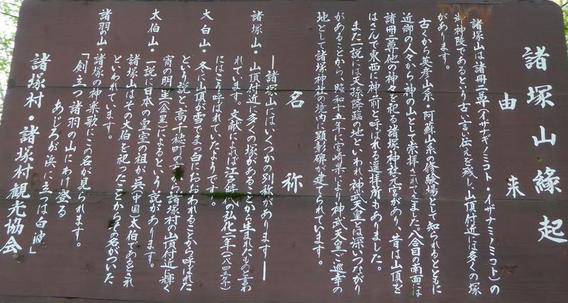 諸塚山縁起
由来
諸塚山には諸冊二尊(イザナギノミコト・イザナミノミコト)の
御神陵であるという古い言い伝えを残し、山頂付近には多くの塚
があります。
古くから英彦山系・阿蘇山系の修験場として知られるとともに
近郷の人々から神の山として崇拝されてきました。八合目の南面には
諸冊二尊他の神々を祀る諸塚神社元宮があり、昔は山頂を
はさんで東西に神前と呼ばれる遥拝所もありました。
また一説には天孫降臨の地といわれ、神武天皇とは深いつながり
があることから、昭和十五年に宮崎県より神武天皇ご巡幸の
地として諸塚神社の境内に顕彰碑が建てられています。
名称
―諸塚山にはいくつかの別称があります―
諸塚山・山頂付近に多くの塚があることから生れたものと言わ
れています。文献によれば江戸時代弘化二年(一八四五年)
にはこう呼ばれていたようです。
太白山・冬に山頂が雪でまっ白におおわれることから呼ばれた
という説と、高千穂町の 諸塚村の山頂付近に輝く
宵の明星(金星)によるという説があります。
太伯山・一説に日本の皇室の祖が呉(中国)の太伯であるとされ
諸塚山はその太伯を祀ったことからその名がついた
といわれています。
諸羽の山・諸塚の神楽歌にこの名が見られます。
「創立つ諸羽の山にわけ登る
あじろが浜に立つは白波」
諸塚村・諸塚村観光協会